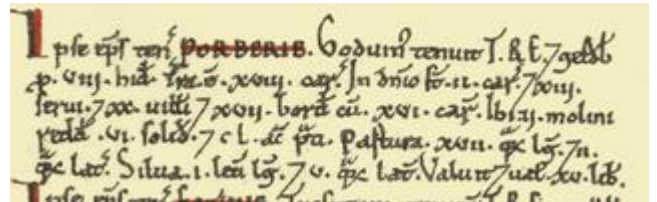 Ipse ep̃s ten̄ PORBERIE. Goduin⁹ tenuit T.R.E. ⁊ geldb̃
p. viii. hid̃. Tr̃a.ē. xviii. car̃. In dñio st̃. ii. car̃. ⁊ xiii.
serui. ⁊ xx. uilłi ⁊ xvii. bord̃ cū. xvi. car̃. Ibi ii. molini
redd̃. vi. solid̃. ⁊ c l. ac̃ p̃ti. Pastura. xviii. q̃ɀ lg̃. ⁊ ii.
q̃ɀ lat̃. Silua. i. leu lg̃. ⁊ v. q̃ɀ lat̃. Valuit ⁊ ual. xv. lib̃.
Ipse ep̃s ten̄